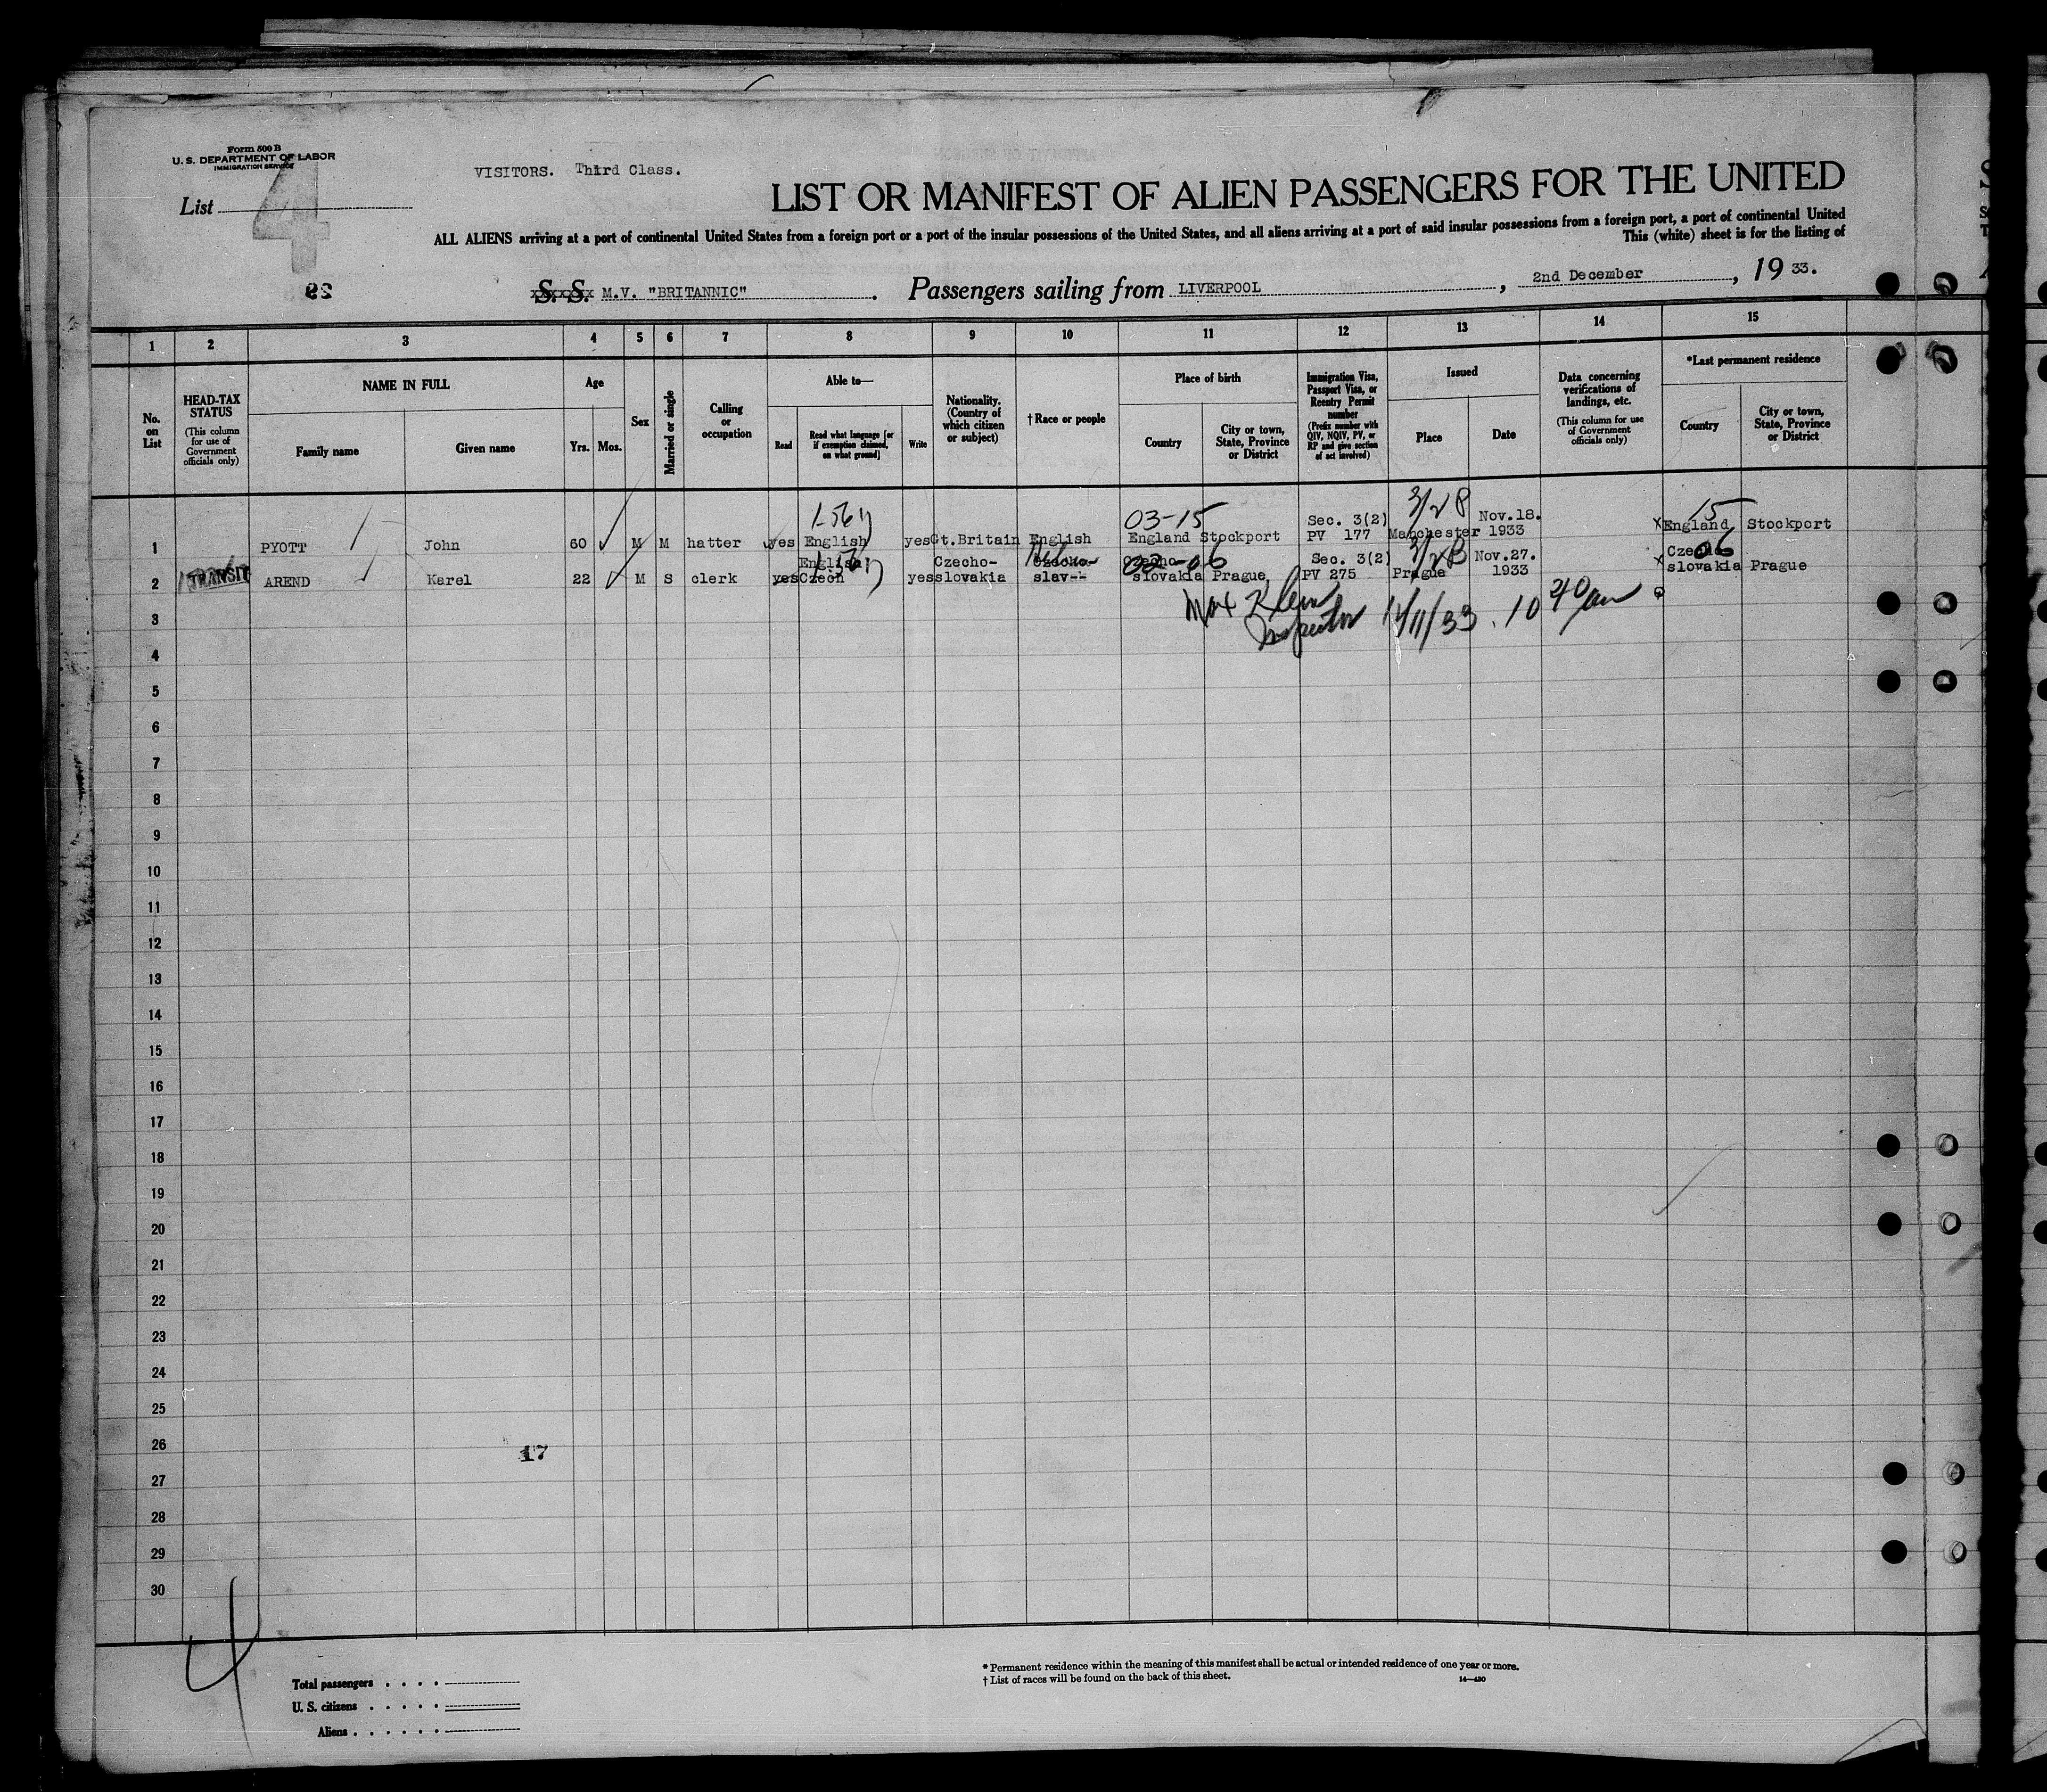 Form 500 B
U. S. DEPARTMENT OF LABOR
IMMIGRATION SERVICE
VISITORS. Third Class.
List 4
LIST OR MANIFEST OF ALIEN PASSENGERS FOR THE UNITED
ALL ALIENS arriving at a port of continental United States from a foreign port or a port of the insular possessions of the United States, and all aliens arriving at a port of said insular possessions from a foreign port, a port of continental United
This (white) sheet is for the listing of
S. S. M.V. "BRITANNIC" . Passengers sailing from LIVERPOOL , 2nd December , 19 33.
1 2 3 4 5 6 7 8 9 10 11 12 13 14 15
No. on List
HEAD-TAX STATUS
(This column for use of Government officials only)
NAME IN FULL
Family name
Given name
Age
Yrs.
Mos.
Sex
Married or single
Calling or occupation
Able to—
Read
Read what language [or if exemption claimed, on what ground]
Write
Nationality. (Country of which citizen or subject)
† Race or people
Place of birth
Country
City or town, State, Province or District
Immigration Visa, Passport Visa, or Reentry Permit number
(Prefix number with QIV, NQIV, PV, or RP and give section of act involved)
Issued
Place
Date
Data concerning verifications of landings, etc.
(This column for use of Government officials only)
*Last permanent residence
Country
City or town, State, Province or District
03-15 3/28 15
Sec. 3(2) Nov.18.
1 PYOTT John 60 M M hatter yes English yes Gt.Britain English England Stockport PV 177 Manchester 1933 x England Stockport
English Czecho- Czecho- Czecho- 02-06 Sec. 3(2) 3/28 Nov.27. x Czecho- 06
2 TRANSIT AREND Karel 22 M S clerk yes Czech yes slovakia slav-- slovakia Prague PV 275 Prague 1933 slovakia Prague
Max Klein
Inspector 12/11/33. 10 40 am
3
4
5
6
7
8
9
10
11
12
13
14
15
16
17
18
19
20
21
22
23
24
25
26
17
27
28
29
30
4
Total passengers
U. S. citizens
Aliens
* Permanent residence within the meaning of this manifest shall be actual or intended residence of one year or more.
† List of races will be found on the back of this sheet.
14—430